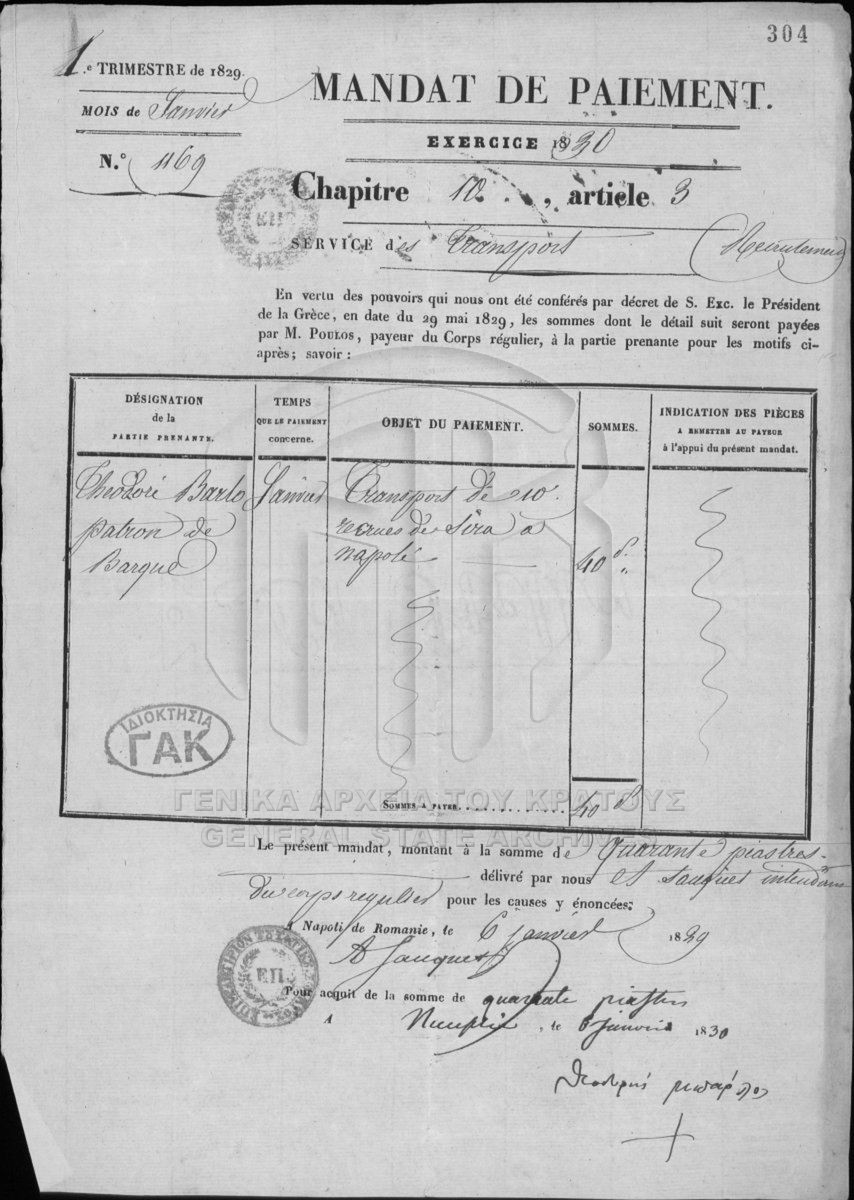 304
1.e TRIMESTRE de 1829.
MOIS de Janvier
N.º 1169
MANDAT DE PAIEMENT.
EXERCICE 1830
Chapitre 10 , article 3
SERVICE des Transport (Recrutement)
En vertu des pouvoirs qui nous ont été conférés par décret de S. Exc. le Président
de la Grèce, en date du 29 mai 1829, les sommes dont le détail suit seront payées
par M. POULOS, payeur du Corps régulier, à la partie prenante pour les motifs ci-
après; savoir :
DÉSIGNATION
de la
PARTIE PRENANTE.
TEMPS
QUE LE PAIEMENT
concerne.
OBJET DU PAIEMENT.
SOMMES.
INDICATION DES PIÈCES
A REMETTRE AU PAYEUR
à l'appui du présent mandat.
Theodore Barlo
patron de
Barque
Janvier
Transport de 10
recrues de Sira a
napoli
40
SOMMES A PAYER
40
ΙΔΙΟΚΤΗΣΙΑ
ΓΑΚ
ΓΕΝΙΚΑ ΑΡΧΕΙΑ ΤΟΥ ΚΡΑΤΟΥΣ
GENERAL STATE ARCHIVES
Le présent mandat, montant à la somme de quarante piastres
délivré par nous intendant
du corps regulier pour les causes y énoncées;
A Napoli de Romanie, le 6 janvier 1829
Pour acquit de la somme de quarante piastres
A Nauplie, le 6 janvier 1830
θεοδορης μπαρλος